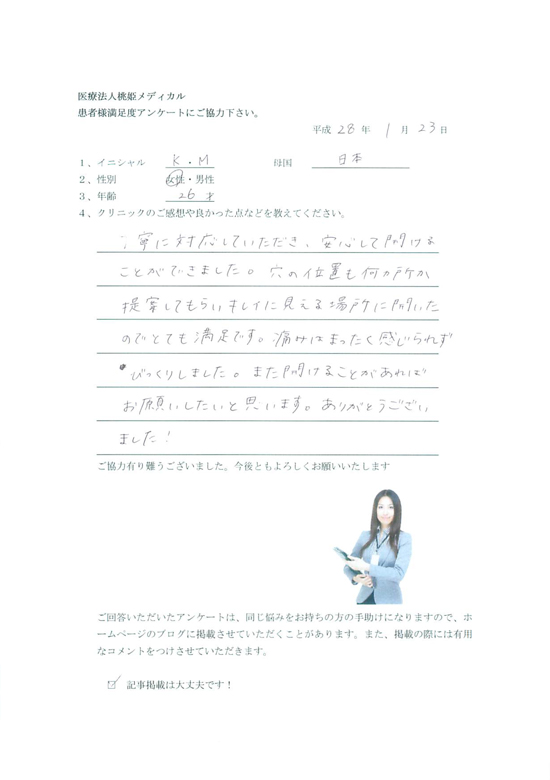 医療法人桃姫メディカル
患者様満足度アンケートにご協力下さい。
平成 28 年 1 月 23 日
1、イニシャル K ・ M 母国 日本
2、性別 女性・男性
3、年齢 26 才
4、クリニックのご感想や良かった点などを教えてください。
丁寧に対応していただき、安心して開ける
ことができました。穴の位置も何カ所か
提案してもらいキレイに見える場所に開いた
のでとても満足です。痛みはまったく感じられず
びっくりしました。また開けることがあれば
お願いしたいと思います。ありがとうござい
ました！
ご協力有り難うございました。今後ともよろしくお願いいたします
ご回答いただいたアンケートは、同じ悩みをお持ちの方の手助けになりますので、ホ
ームページのブログに掲載させていただくことがあります。また、掲載の際には有用
なコメントをつけさせていただきます。
☑ 記事掲載は大丈夫です！